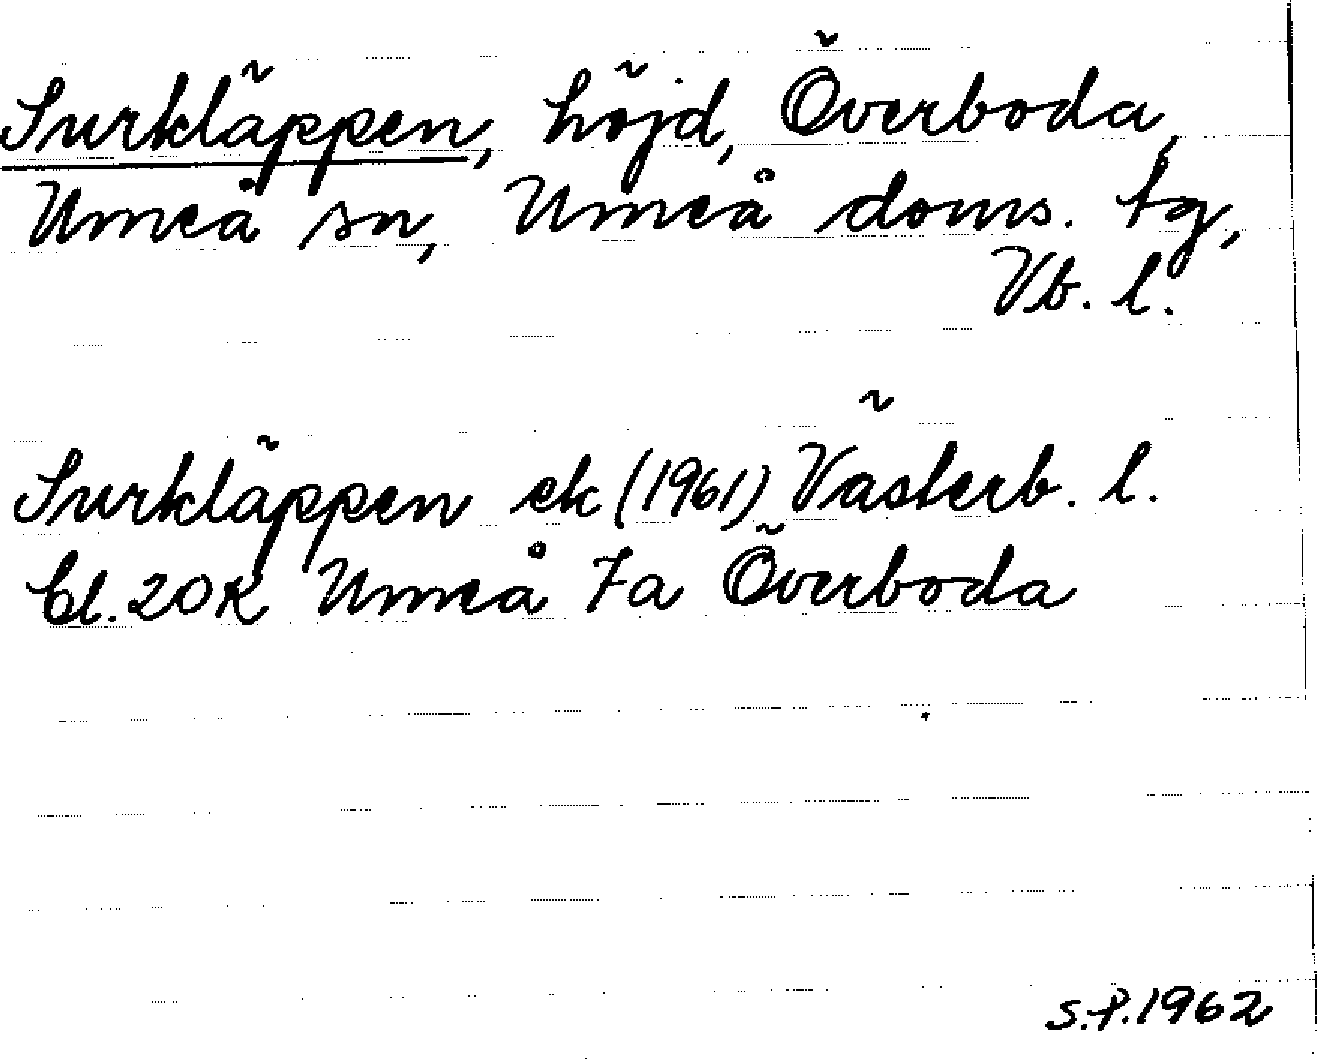 Surkläppen, höjd, Överboda,
Umeå sn, Umeå doms. tg,
Vb. l.
Surkläppen ek (1961) Västerb. l.
Bl. 20K Umeå 7a Överboda
S.P. 1962